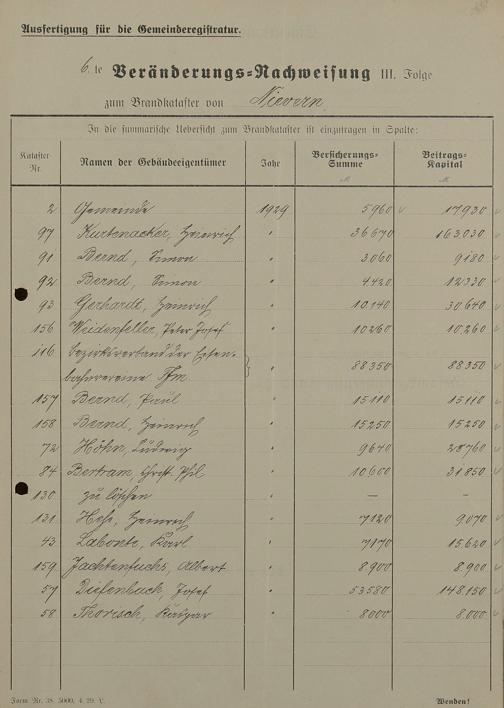 Ausfertigung für die Gemeinderegistratur.
6.te Veränderungs=Nachweisung III. Folge
zum Brandkataster von Nievern
In die summarische Uebersicht zum Brandkataster ist einzutragen in Spalte:
Kataster Nr. Namen der Gebäudeeigentümer Jahr Versicherungs=Summe M. Beitrags=Kapital M.
2 Gemeinde 1929 5960 17930
97 Kurtenacker, Heinrich " 36670 163030
91 Bernd, Simon " 3060 9180
92 Bernd, Simon " 4420 12330
93 Gerhardt, Heinrich " 10140 30640
156 Weidenfeller, Peter Josef " 10260 10260
116 Bezirksverband der Eisen-
bahnvereine Ffm. " 88350 88350
157 Bernd, Paul " 15110 15110
158 Bernd, Heinrich " 15250 15250
72 Höhn, Ludwig " 9640 28760
84 Bertram, Christ. Phil " 10600 31850
130 zu löschen " – –
131 Heß, Heinrich " 7120 9070
43 Labonte, Karl " 7170 15620
159 Jachtenfuchs, Albert " 8900 8900
57 Diefenbach, Josef " 53580 148150
58 Thorisch, Kaspar " 8000 8000
Form Nr. 38. 5000. 4. 29. L.
Wenden!